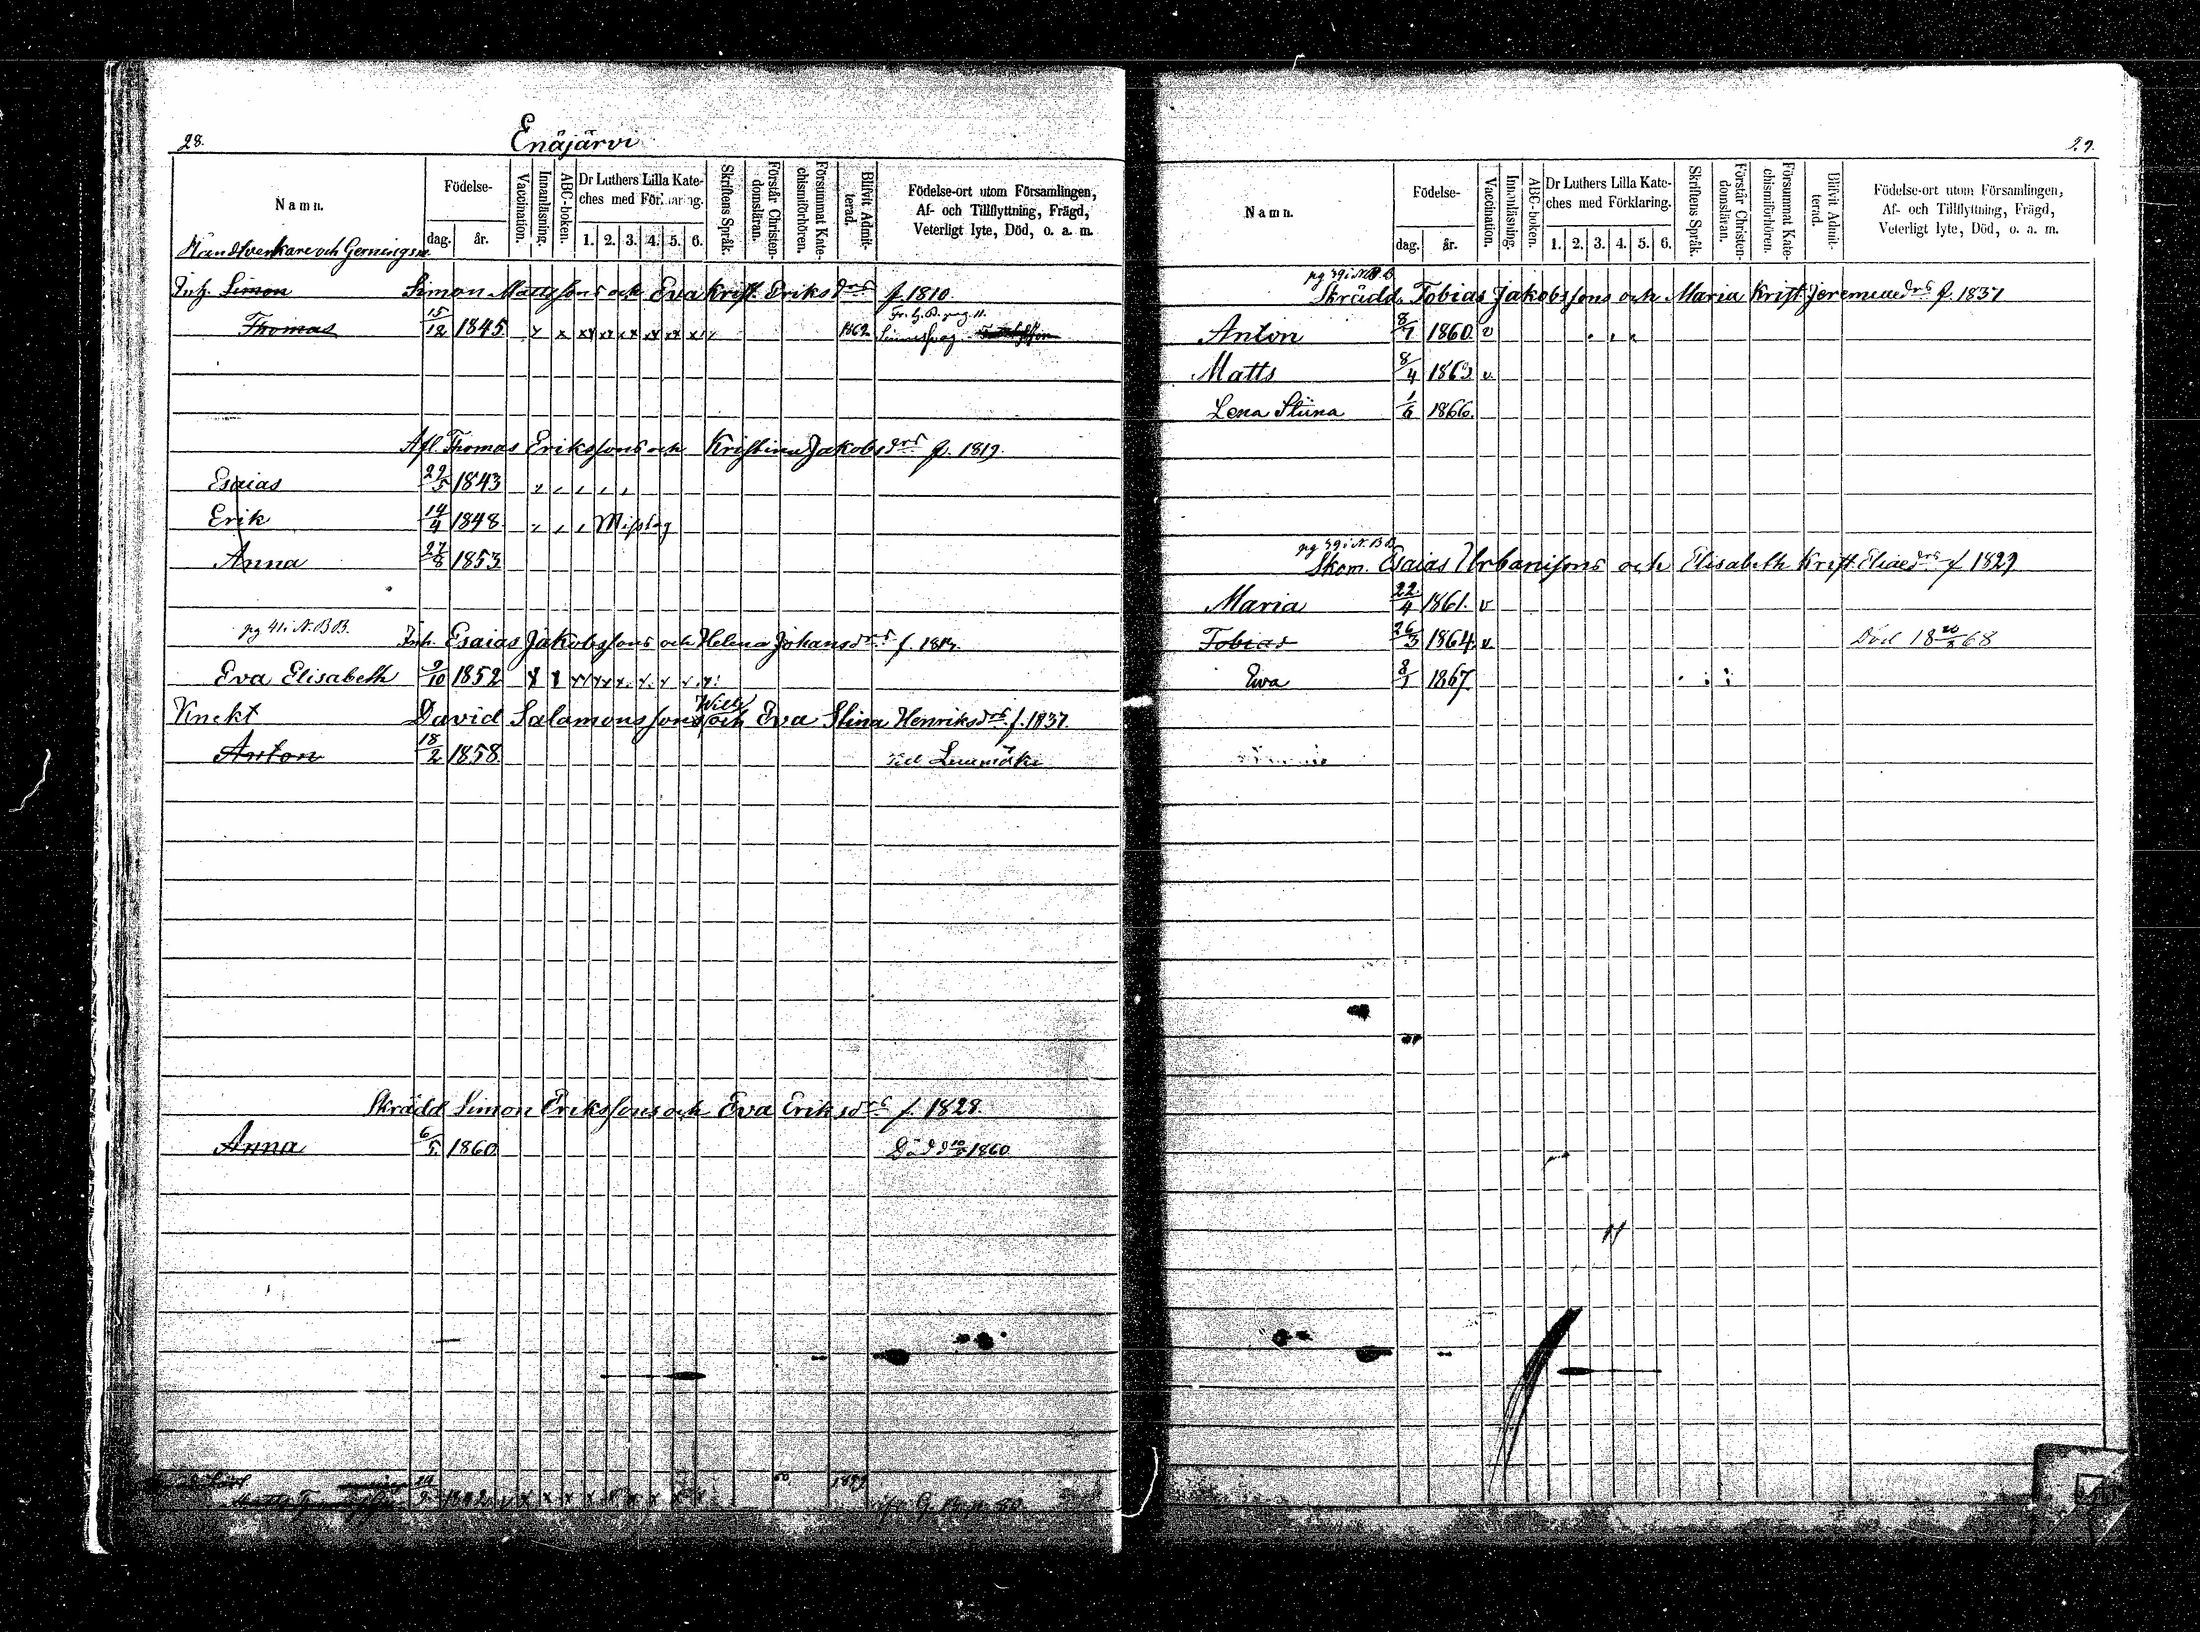 28.
Enäjärvi
Namn.
Födelse-
dag.
år.
Vaccination.
Innanläsning.
ABC-boken.
Dr Luthers Lilla Kate-
ches med Förklaring.
1. 2. 3. 4. 5. 6.
Skriftens Språk.
Förstår Christen-
domsläran.
Försummat Kate-
chismiförhören.
Blifvit Admit-
terad.
Födelse-ort utom Församlingen,
Af- och Tillflyttning, Frägd,
Veterligt lyte, Död, o. a. m.
Handtverkare och
Inh. Simon Simon Mattssons och Eva Krist. Eriksdrs f. 1810.
Thomas 15/12 1845 x x xx xx xx xx xx x 1862
Afl. Thomas Erikssons och Kristina Jakobsdrs f. 1819.
Esaias 22/5 1843
Erik 14/4 1848 Misslag
Anna 27/8 1853
pg 41 i N. B B.
Inh. Esaias Jakobssons och Helena Johansdrs f.
Eva Elisabeth 9/10 1852 x x xx xx x x x x x
Knekt David Salamonssons och Eva Stina Henriksdrs f. 1837.
Anton 18/2 1858 till
Skrädd Simon Erikssons och Eva Eriksdrs f. 1828.
Anna 6/5 1860 Död d 1860
29.
Namn.
Födelse-
dag.
år.
Vaccination.
Innanläsning.
ABC-boken.
Dr Luthers Lilla Kate-
ches med Förklaring.
1. 2. 3. 4. 5. 6.
Skriftens Språk.
Förstår Christen-
domsläran.
Försummat Kate-
chismiförhören.
Blifvit Admit-
terad.
Födelse-ort utom Församlingen,
Af- och Tillflyttning, Frägd,
Veterligt lyte, Död, o. a. m.
pg 39 i N. B B
Skrädd. Tobias Jakobssons och Maria Krist. Jeremiaedrs f. 1831
Anton 8/7 1860. v
Matts 8/4 1863 v
Lena Stiina 1/6 1866.
pg 39 i N. B B
Skom. Esaias Urbanssons och Elisabeth Krist. Eliaedrs f 1829
Maria 22/4 1861. v
Tobias 26/3 1864. v Död 18 20/2 68
Ewa 8/1 1867